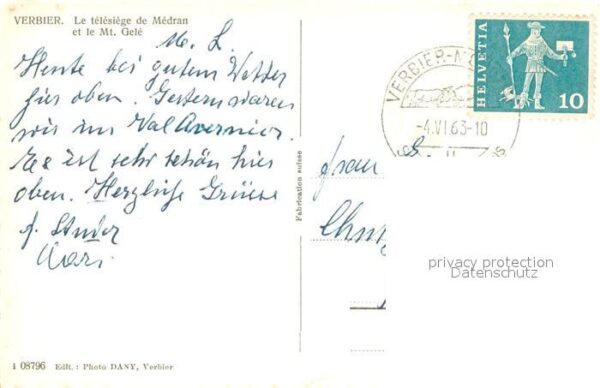 VERBIER. Le télésiège de Médran
et le Mt. Gelé
M. L.
Heute bei gutem Wetter
hier oben. Gestern waren
wir im Val
Es ist sehr schön hier
oben. Herzliche Grüsse
Fabrication suisse
1 08796 Edit. : Photo DANY, Verbier
VERBIER
-4.VI.63-10
HELVETIA
10
Frau
privacy protection
Datenschutz